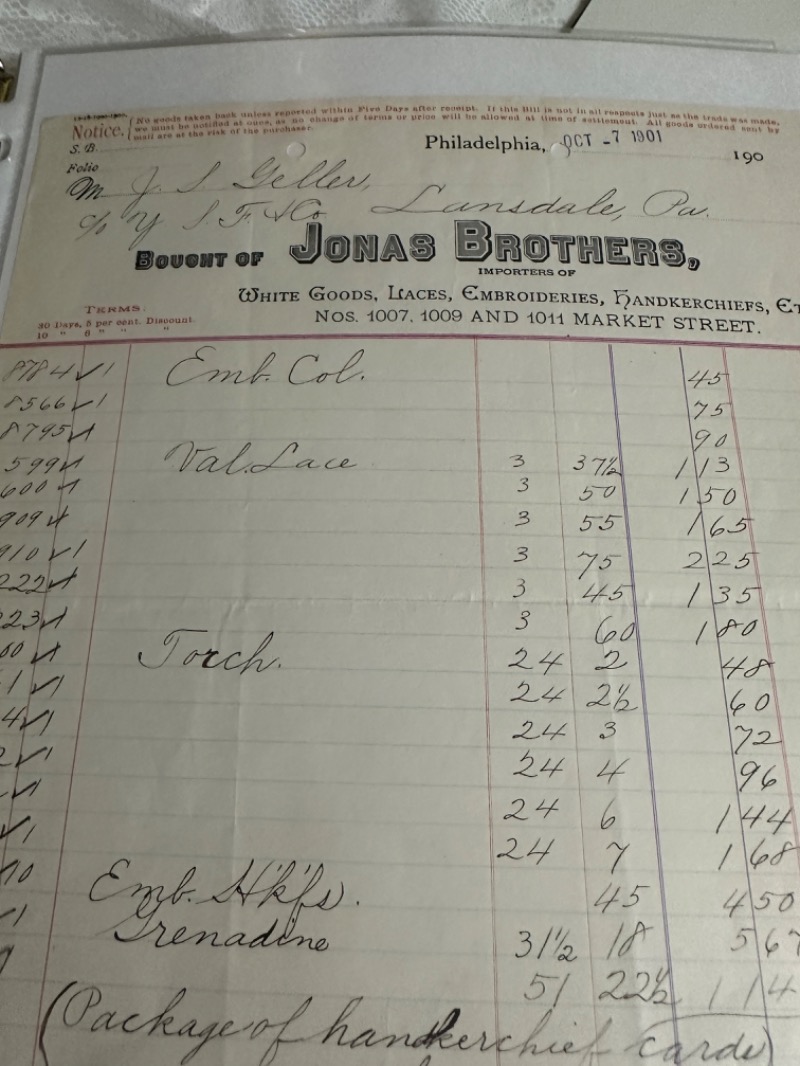 Notice. { No goods taken back unless reported within Five Days after receipt. If this Bill is not in all respects just as the trade was made,
we must be notified at once, as no change of terms or price will be allowed at time of settlement. All goods ordered sent by
mail are at the risk of the purchaser.
S. B.
Philadelphia, OCT -7 1901 190
Folio
M J. S. Geller,
c/o Y S. F. & Co Lansdale, Pa.
BOUGHT OF JONAS BROTHERS,
IMPORTERS OF
WHITE GOODS, LACES, EMBROIDERIES, HANDKERCHIEFS, ET
NOS. 1007, 1009 AND 1011 MARKET STREET.
TERMS:
30 Days, 5 per cent. Discount.
10 " 6 " " "
8784 ✓ 1 Emb. Col. 45
8566 ✓ 1 75
8795 ✓ 1 90
599 ✓ 1 Val. Lace 3 37½ 1 13
600 ✓ 1 3 50 1 50
909 ✓ 1 3 55 1 65
910 ✓ 1 3 75 2 25
222 ✓ 1 3 45 1 35
223 ✓ 1 3 60 1 80
60 ✓ 1 Torch. 24 2 48
1 ✓ 1 24 2½ 60
4 ✓ 1 24 3 72
2 ✓ 1 24 4 96
✓ 1 24 6 1 44
✓ 1 24 7 1 68
10 Emb. H'k'fs. 45 4 50
✓ 1 Grenadine 31½ 18 5 67
51 22½ 11 4
(Package of handkerchief cards)